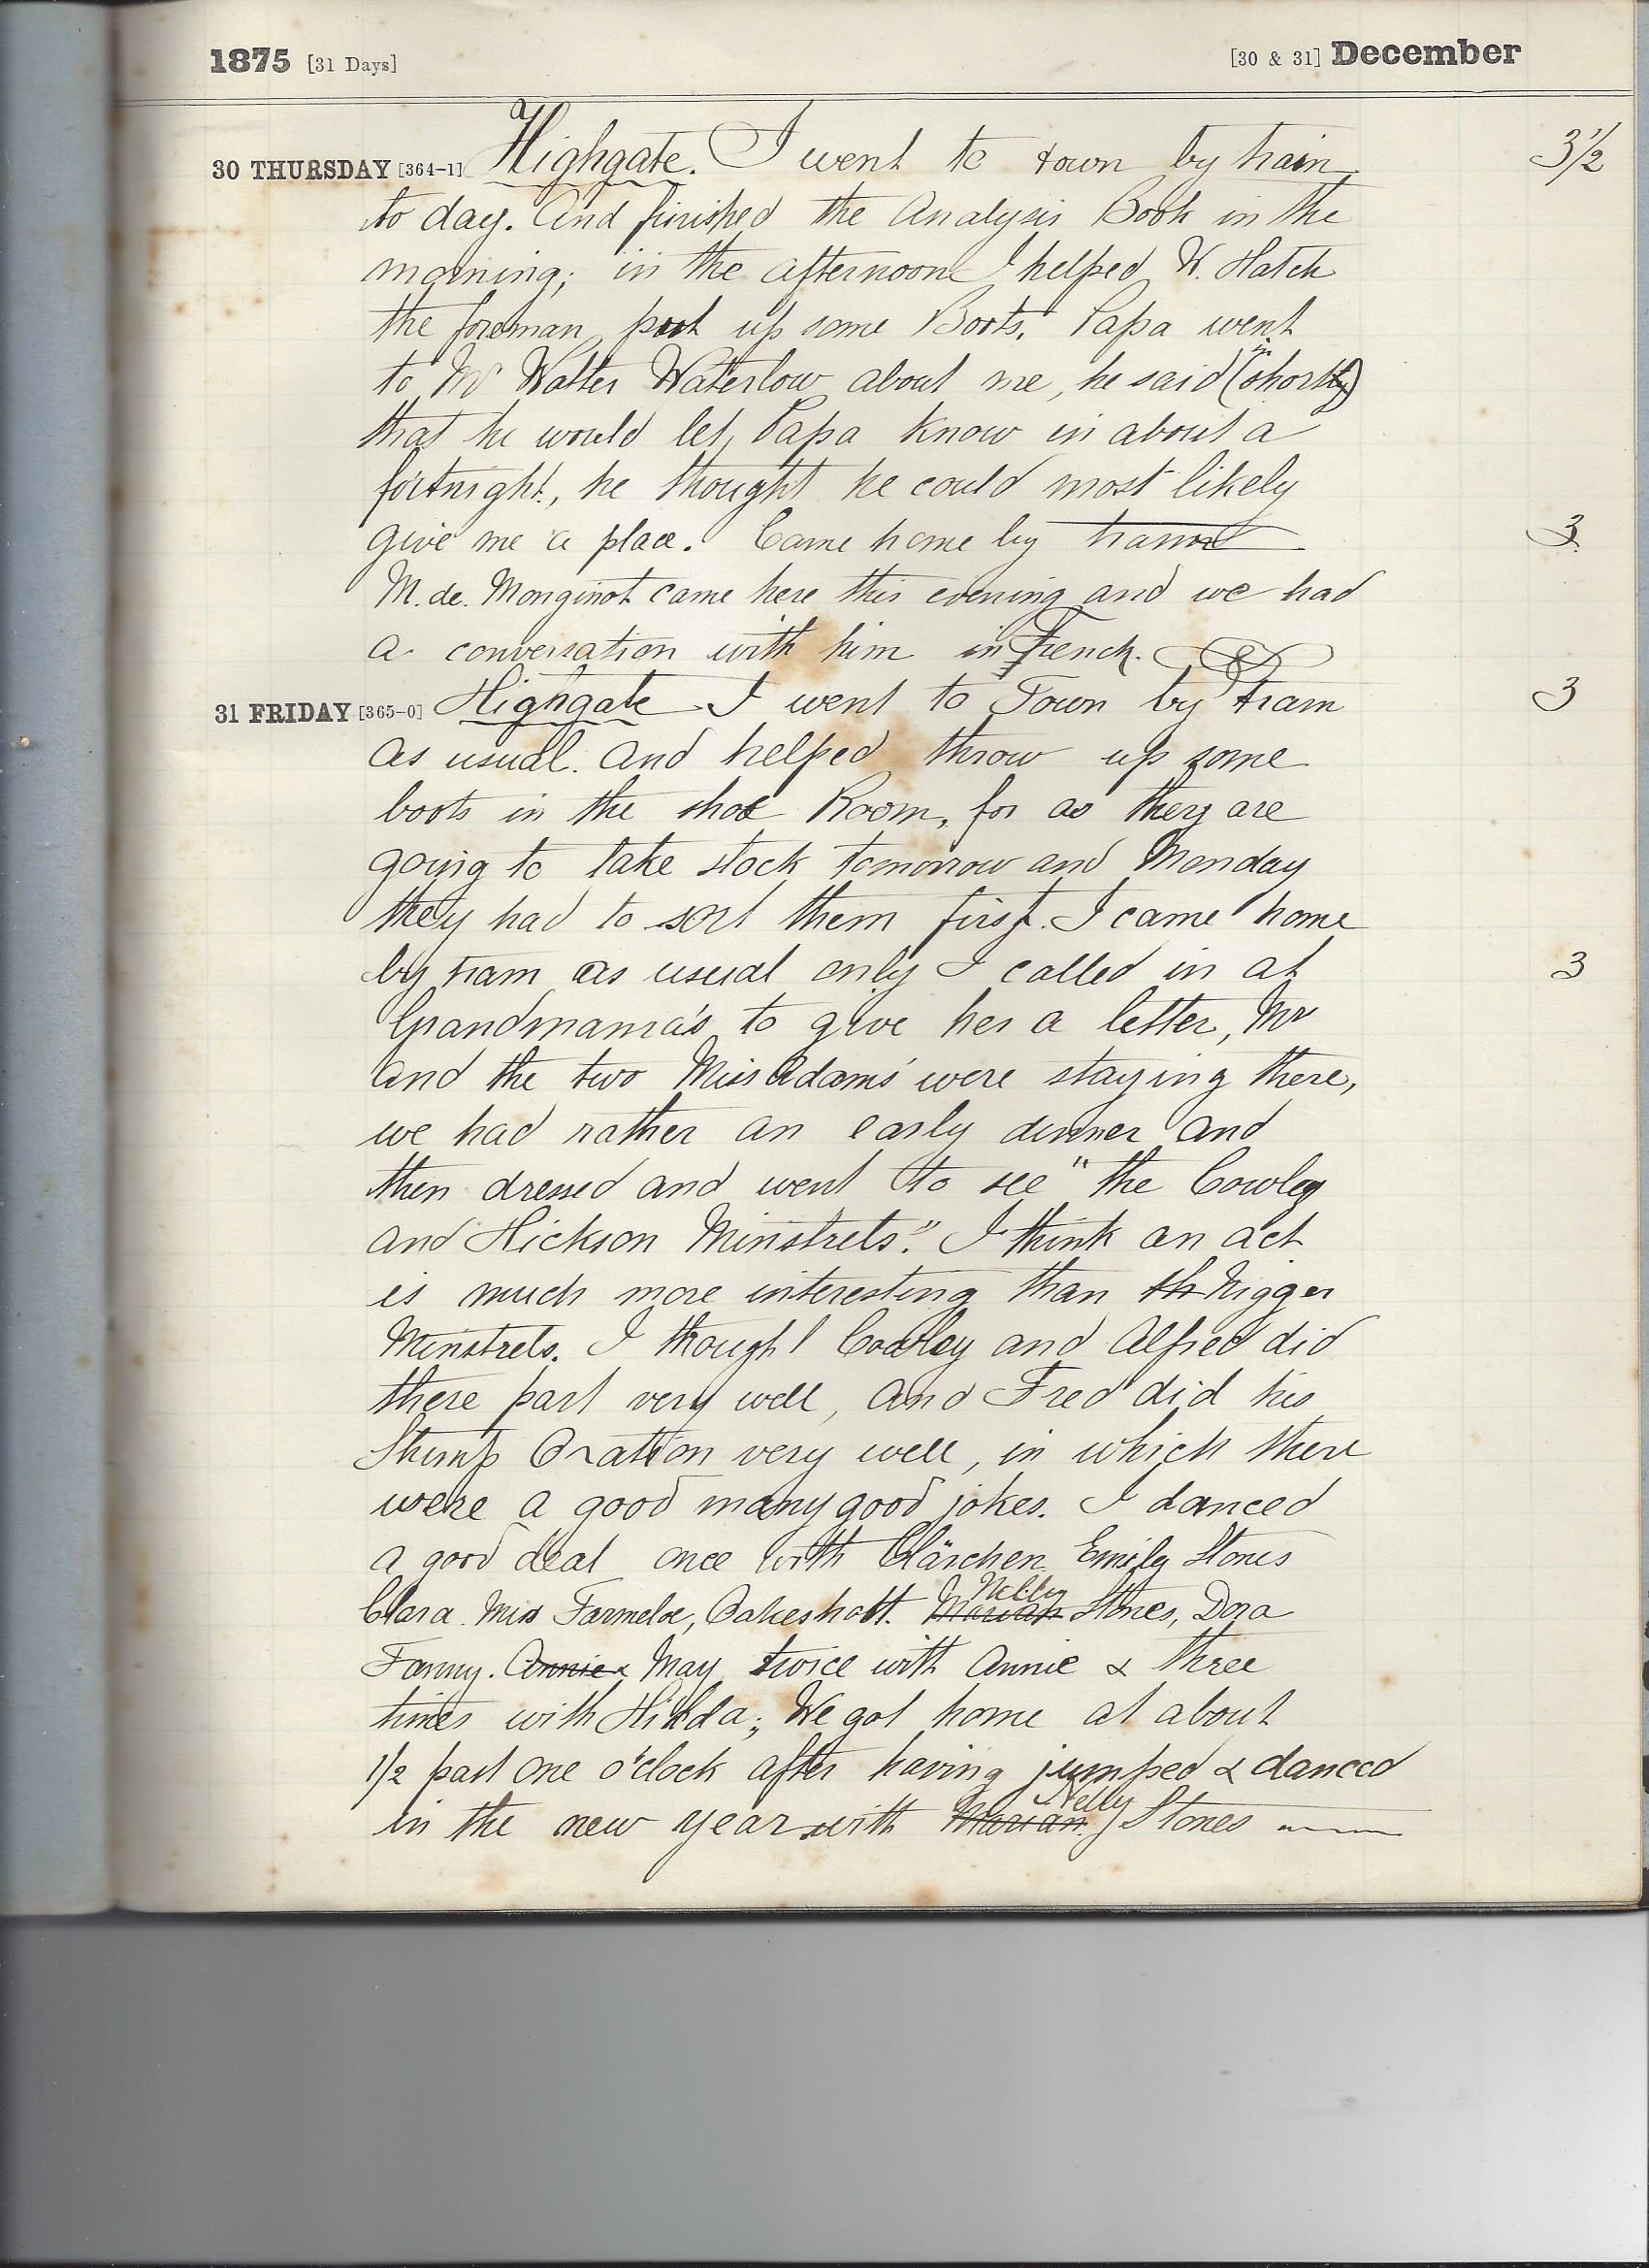 1875 [31 Days] [30 & 31] December
30 THURSDAY [364-1] Highgate. I went to town by train 3½
to day. And finished the Analysis Book in the
morning; in the afternoon I helped W. Hatch
the foreman put up some Boots. Papa went
to Mr Walter Waterlow about me, he said (in short)
that he would let Papa know in about a
fortnight, he thought he could most likely
give me a place. Came home by tram 3
M. de. Monginot came here this evening and we had
a conversation with him in French.
31 FRIDAY [365-0] Highgate I went to Town by tram 3
as usual. and helped throw up some
boots in the shoe Room, for as they are
going to take stock tomorrow and Monday
they had to sort them first. I came home
by tram as usual only I called in at 3
Grandmama's to give her a letter, Mr
and the two Miss Adams' were staying there,
we had rather an early dinner and
then dressed and went to see "the Cowley
and Hickson Minstrels". I think an act
is much more interesting than th Nigger
Minstrels. I thought Cowley and Alfred did
there part very well, and Fred did his
Stump Oration very well, in which there
were a good many good jokes. I danced
a good deal once with Clärchen Emily Stones
Clara. Miss Farmeloe, Oakeshott. Marian Nelly Stones, Dora
Fanny. Annie & May twice with Annie & three
times with Hilda; We got home at about
1/2 past one o'clock after having jumped & danced
in the new year with Marian Nelly Stones